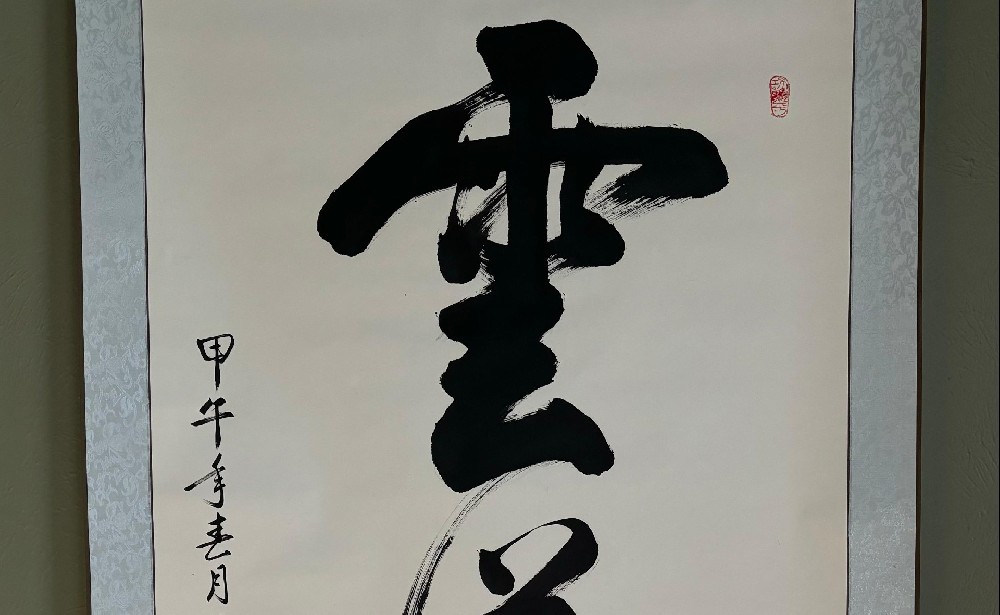 雲
甲午年春月